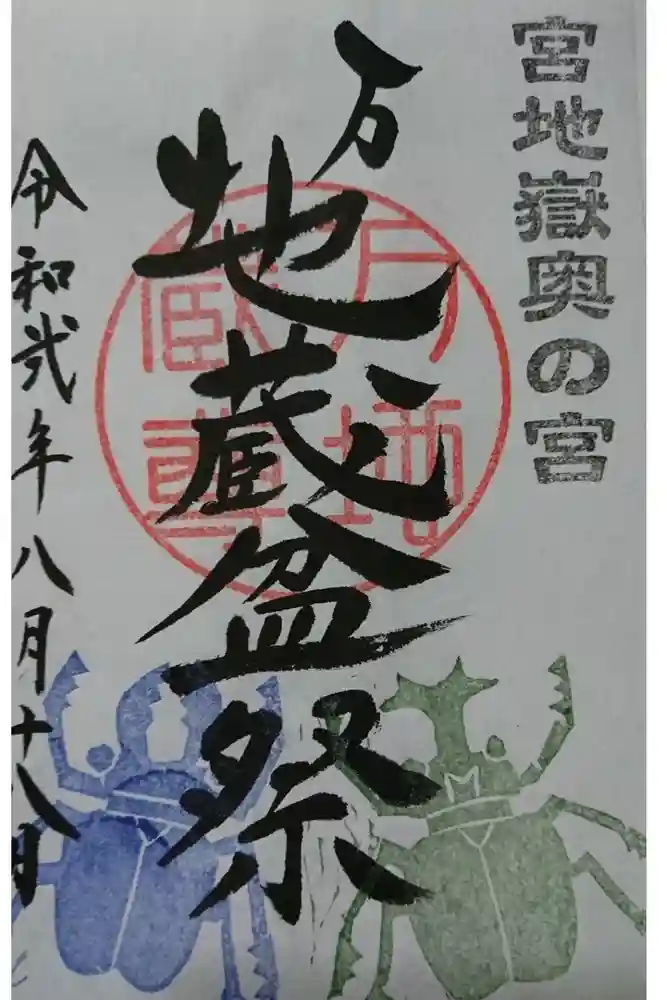 宮地嶽奥の宮
万地蔵盆祭
令和弐年八月十八日